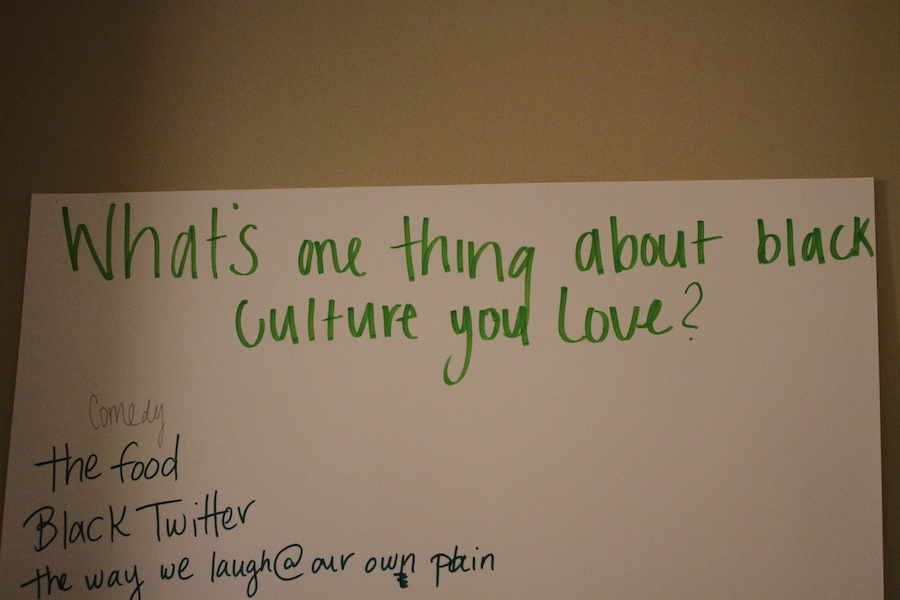 What's one thing about black
culture you love?
Comedy
the food
Black Twitter
the way we laugh@our own pain